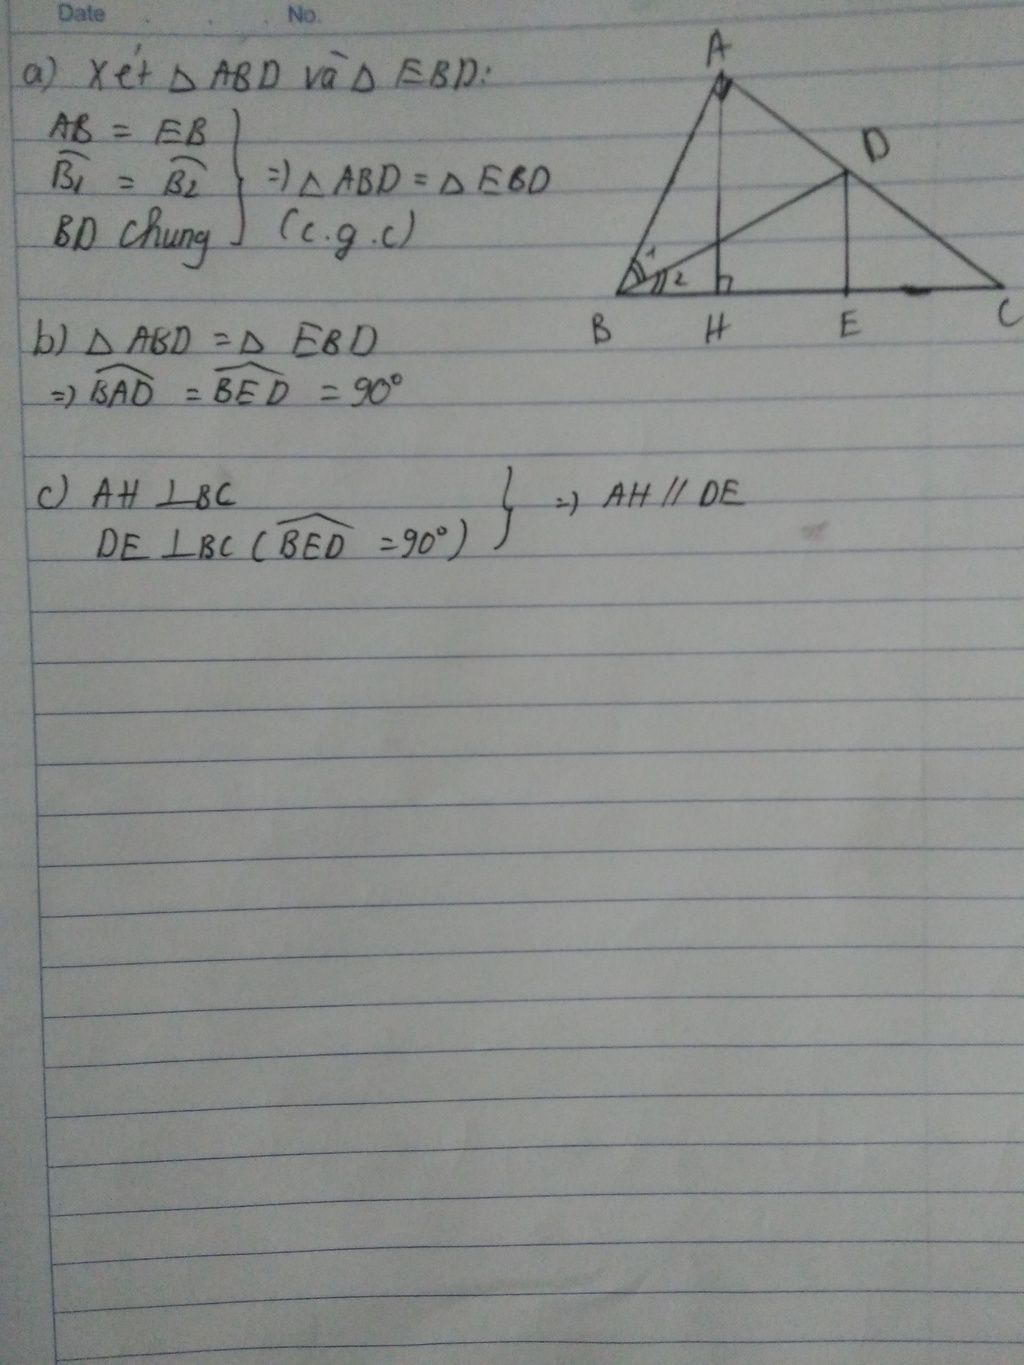 Date No.
a) Xét △ ABD và △ EBD:
AB = EB
B̂1 = B̂2 } => △ ABD = △ EBD
BD chung (c.g.c)
A
D
1
2
B H E C
b) △ ABD = △ EBD
=> BAD = BED = 90°
c) AH ⊥ BC
DE ⊥ BC (BED = 90°) } => AH // DE